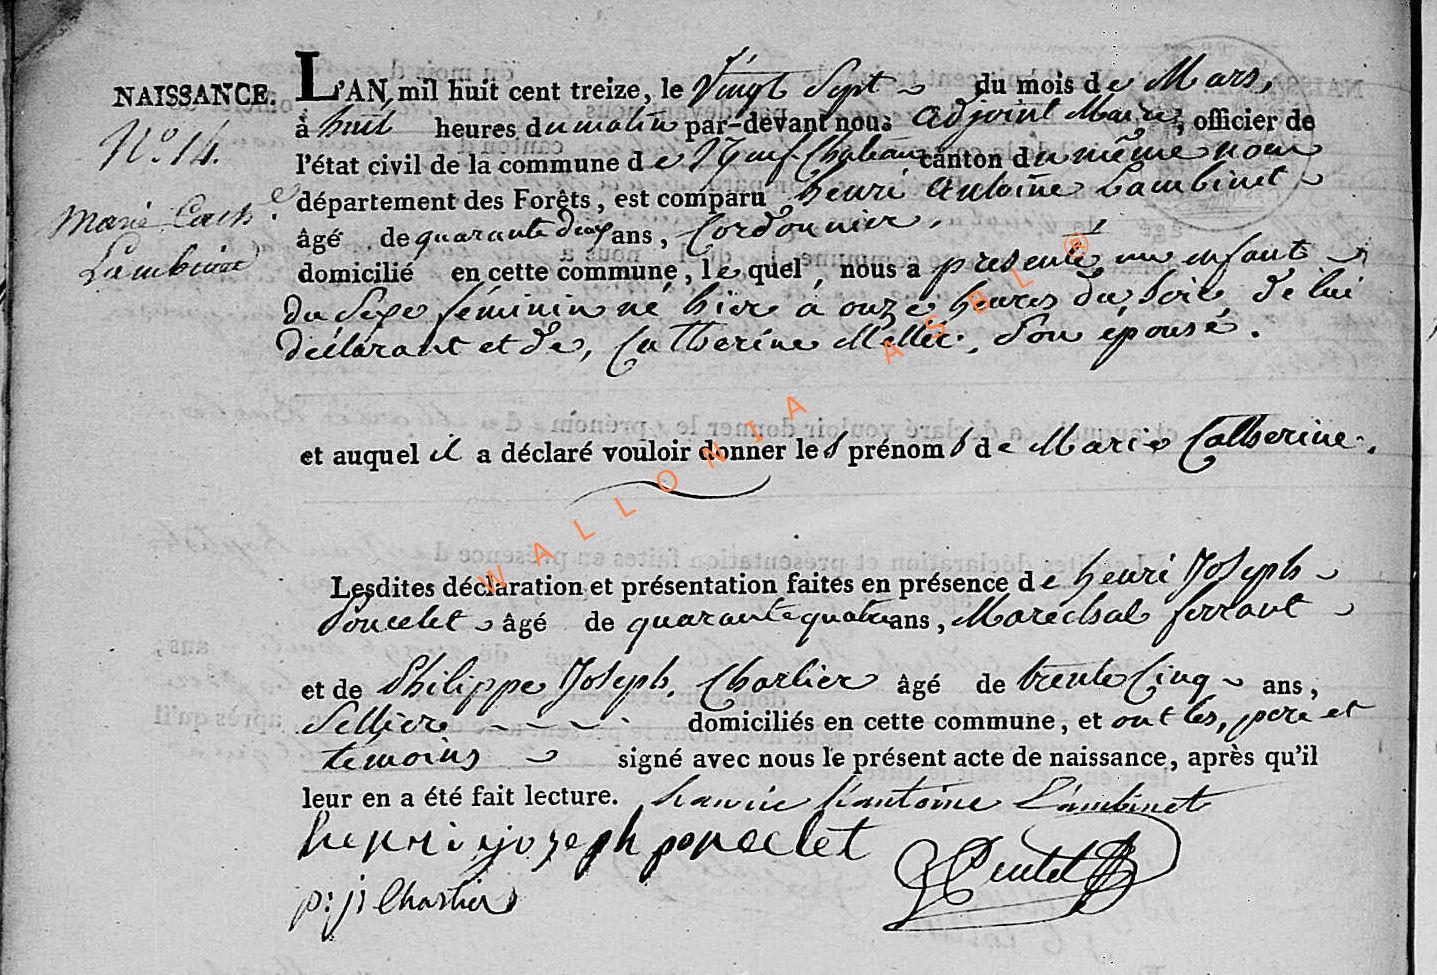 NAISSANCE.
N.o 14.
Marie Cathe.
Lambinet
L'AN mil huit cent treize, le Vingt Sept du mois de Mars,
à huit heures du matin par-devant nous adjoint Maire, officier de
l'état civil de la commune de Neufchateau canton du même nom
département des Forêts, est comparu henri Antoine Lambinet
âgé de quarante deux ans, Cordonnier,
domicilié en cette commune, lequel, nous a presenté un enfant
du Sexe féminin né hier à onze heures du Soir de lui
déclarant et de, Catherine Mellér, Son épouse.
et auquel il a déclaré vouloir donner les prénoms de Marie Catherine.
Lesdites déclaration et présentation faites en présence de henri Joseph
Poncelet âgé de quarante quatre ans, Maréchal ferrant
et de Philippe Joseph Charlier âgé de trente Cinq ans,
Sellier domiciliés en cette commune, et ont les, pere et
témoins signé avec nous le présent acte de naissance, après qu'il
leur en a été fait lecture. L'antoine Lambinet
henri jozeph poncelet
p: j: Charlier
WALLONIA ASBL ®